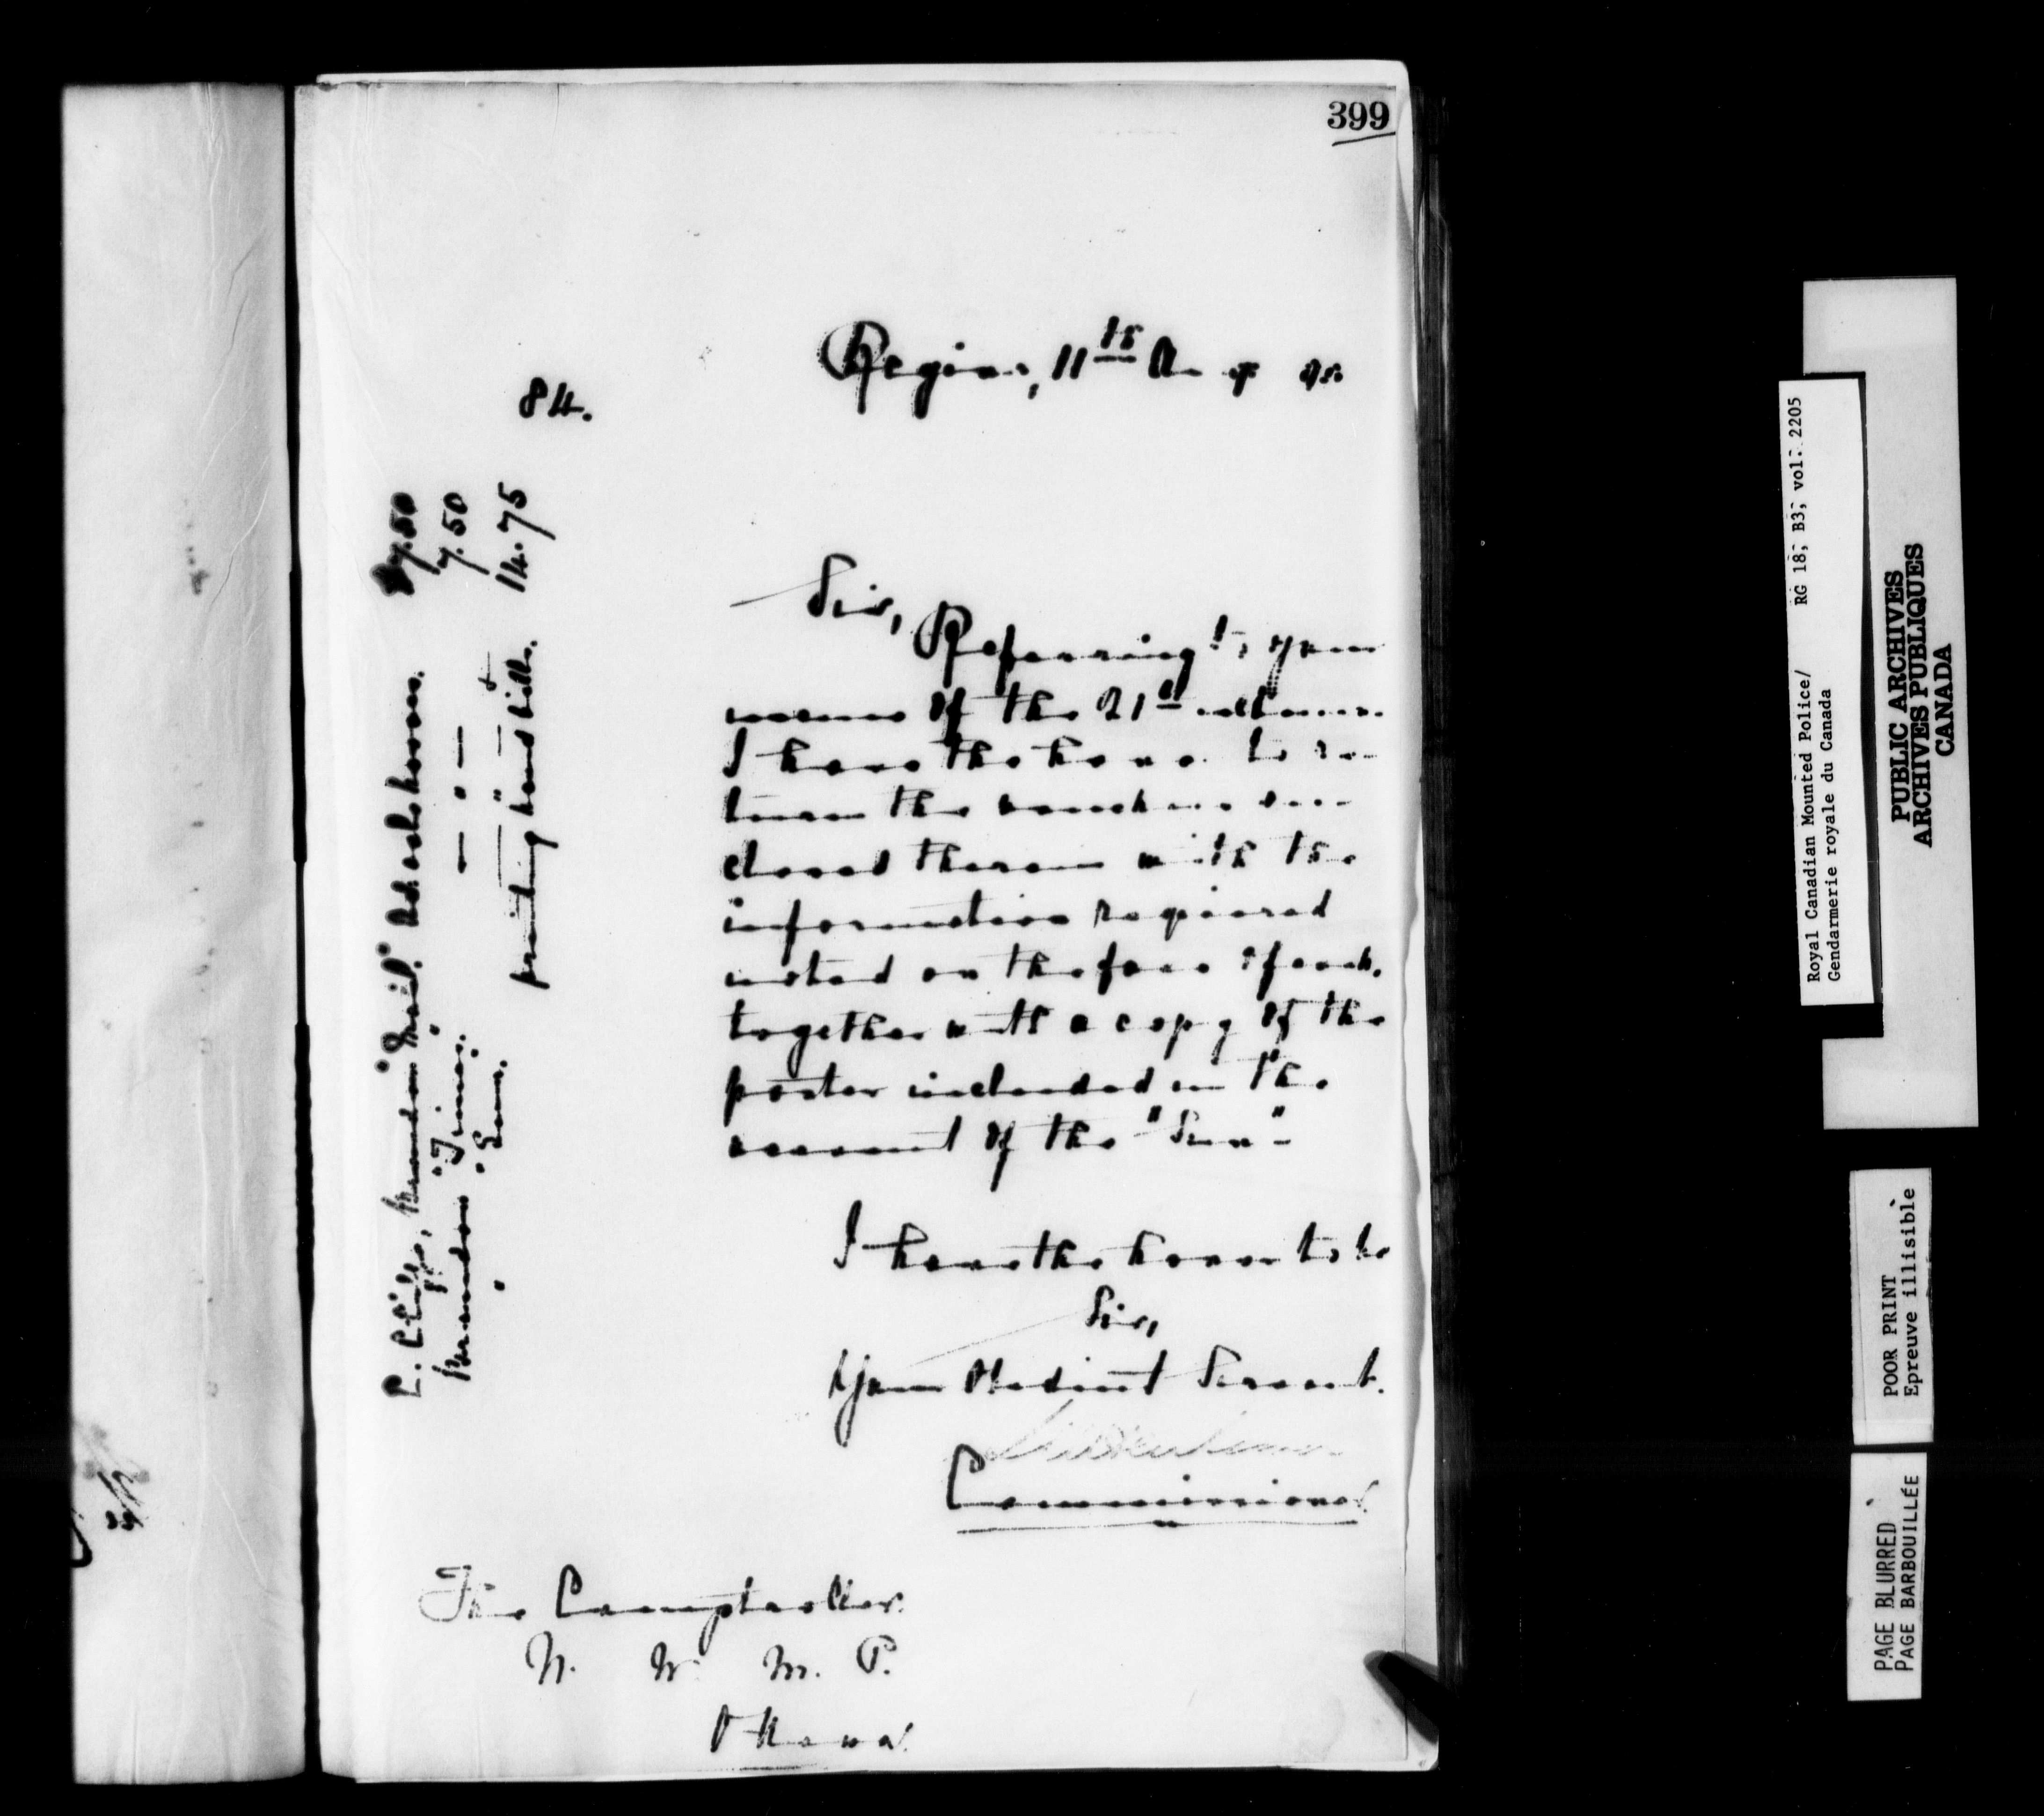 399
Regina, 11th Aug
84.
Sir,
Referring to your
memo of the 21st ultimo.
I have the honor to re-
turn the vouchers en-
closed therein with the
information required
noted on the face of each,
together with a copy of the
poster included in the
account of the "Sun"-
I have the honor to be
Sir,
Your Obedient Servant.
Commissioner
The Comptroller
N. W. M. P.
Ottawa
C. Cliffe, Brandon "Mail". Ad. 7.50
Brandon "Times". — " — 7.50
" "Sun". — " — + 14.75
printing hand bills.
Royal Canadian Mounted Police/ RG 18, B3, vol. 2205
Gendarmerie royale du Canada
PUBLIC ARCHIVES
ARCHIVES PUBLIQUES
CANADA
POOR PRINT
Epreuve illisible
PAGE BLURRED
PAGE BARBOUILLÉE